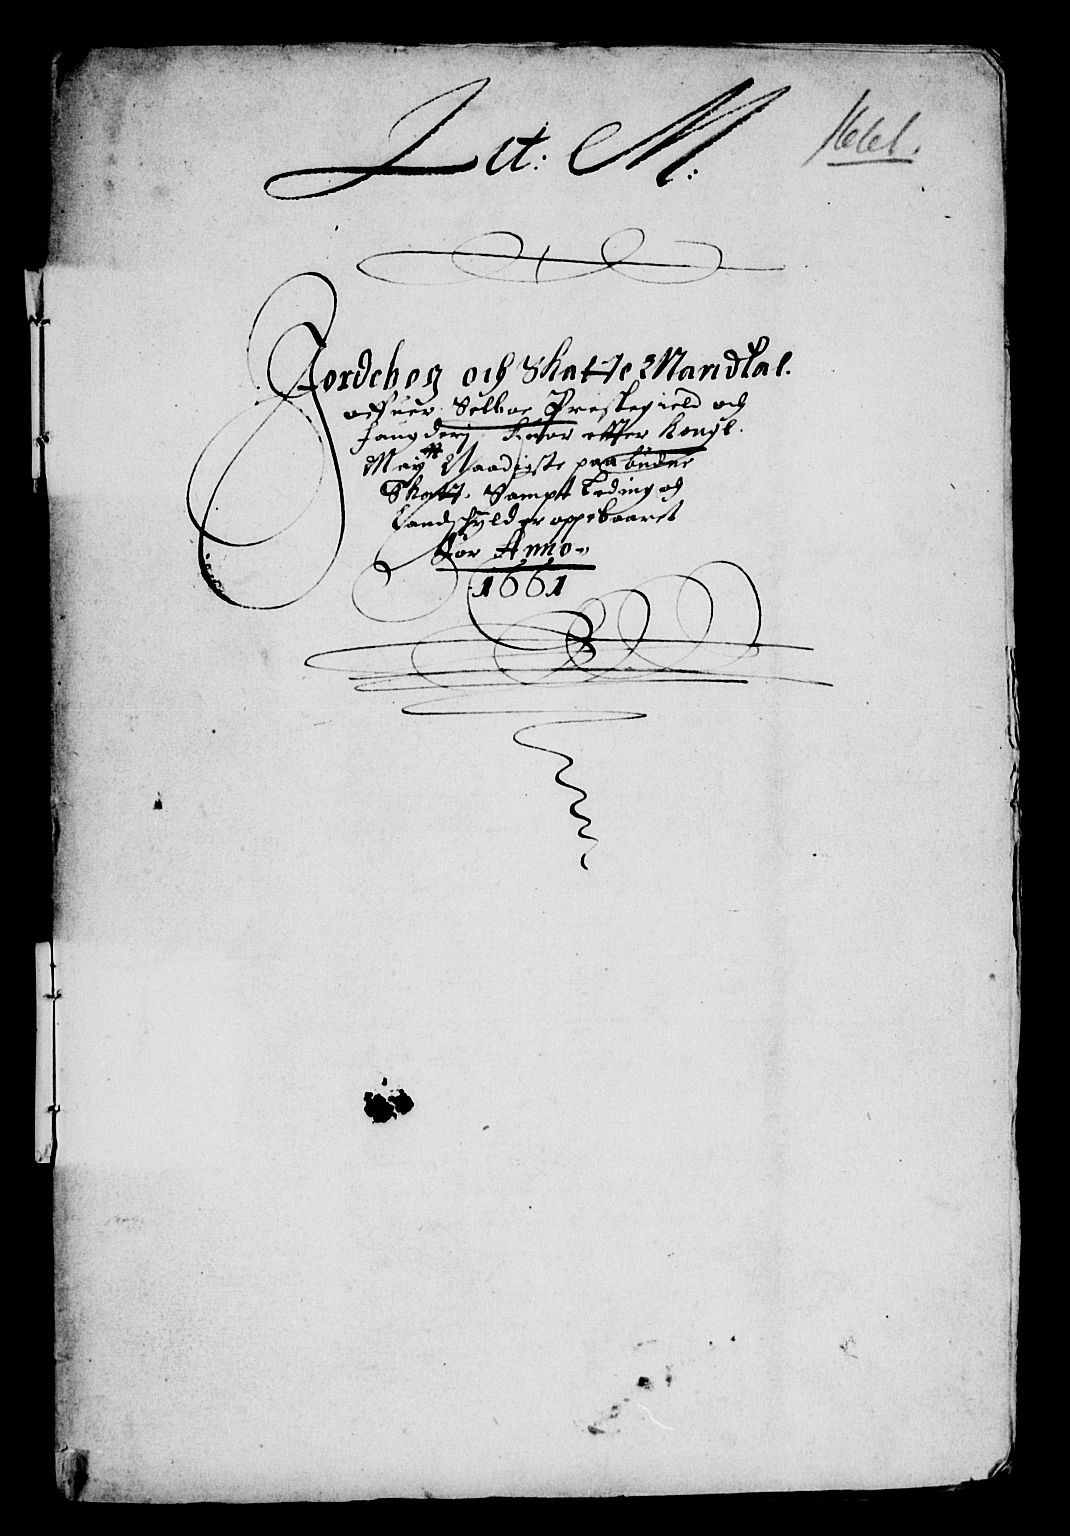 Lit: M:
1661.
Jordebog och Skatte Mandtal.
ofuer Selboe Prestegield och
fougderj, huor efter Kongl.
Maytt Naadigste paabudne
Skatt, Sampt Leding och
Landschyld er oppebaaret
for Anno
1661